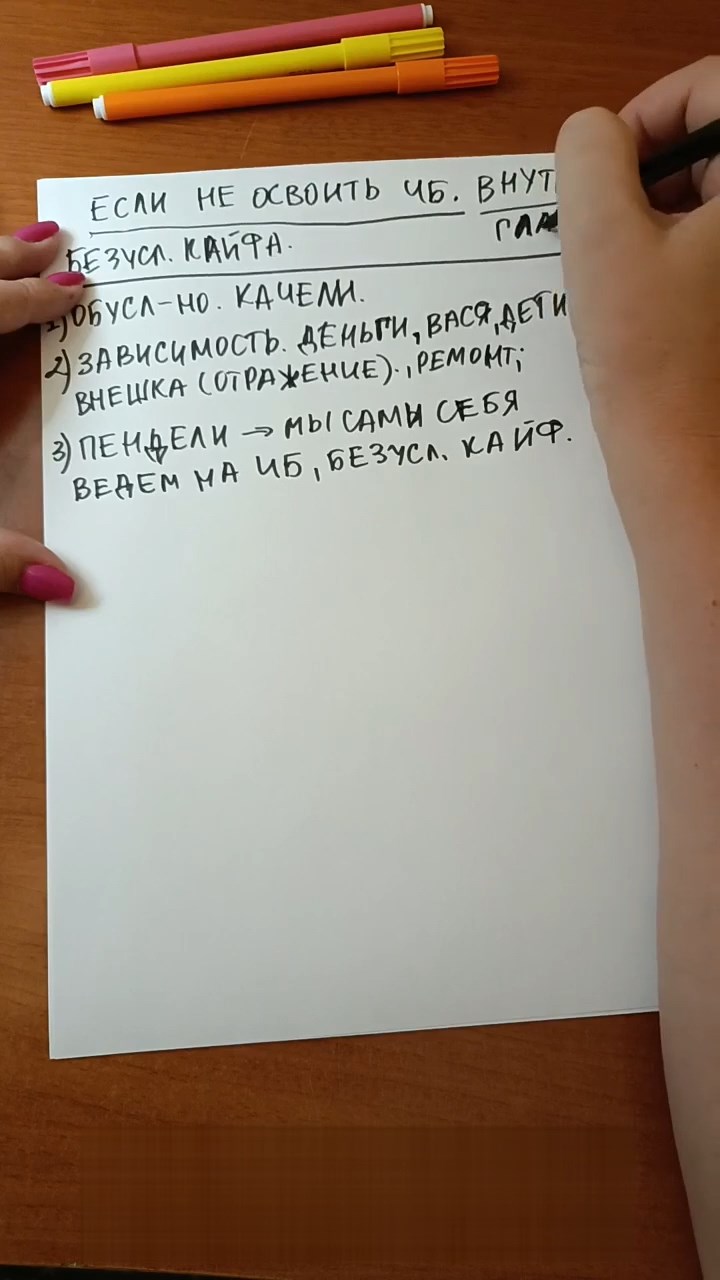 ЕСЛИ НЕ ОСВОИТЬ ЧБ. ВНУТ
БЕЗУСЛ. КАЙФА.
1) ОБУСЛ-НО. КАЧЕЛИ.
2) ЗАВИСИМОСТЬ. ДЕНЬГИ, ВАСЯ, ДЕТИ
ВНЕШКА (ОТРАЖЕНИЕ)., РЕМОНТ;
3) ПЕНДЕЛИ → МЫ САМИ СЕБЯ
ВЕДЕМ НА ЧБ, БЕЗУСЛ. КАЙФ.